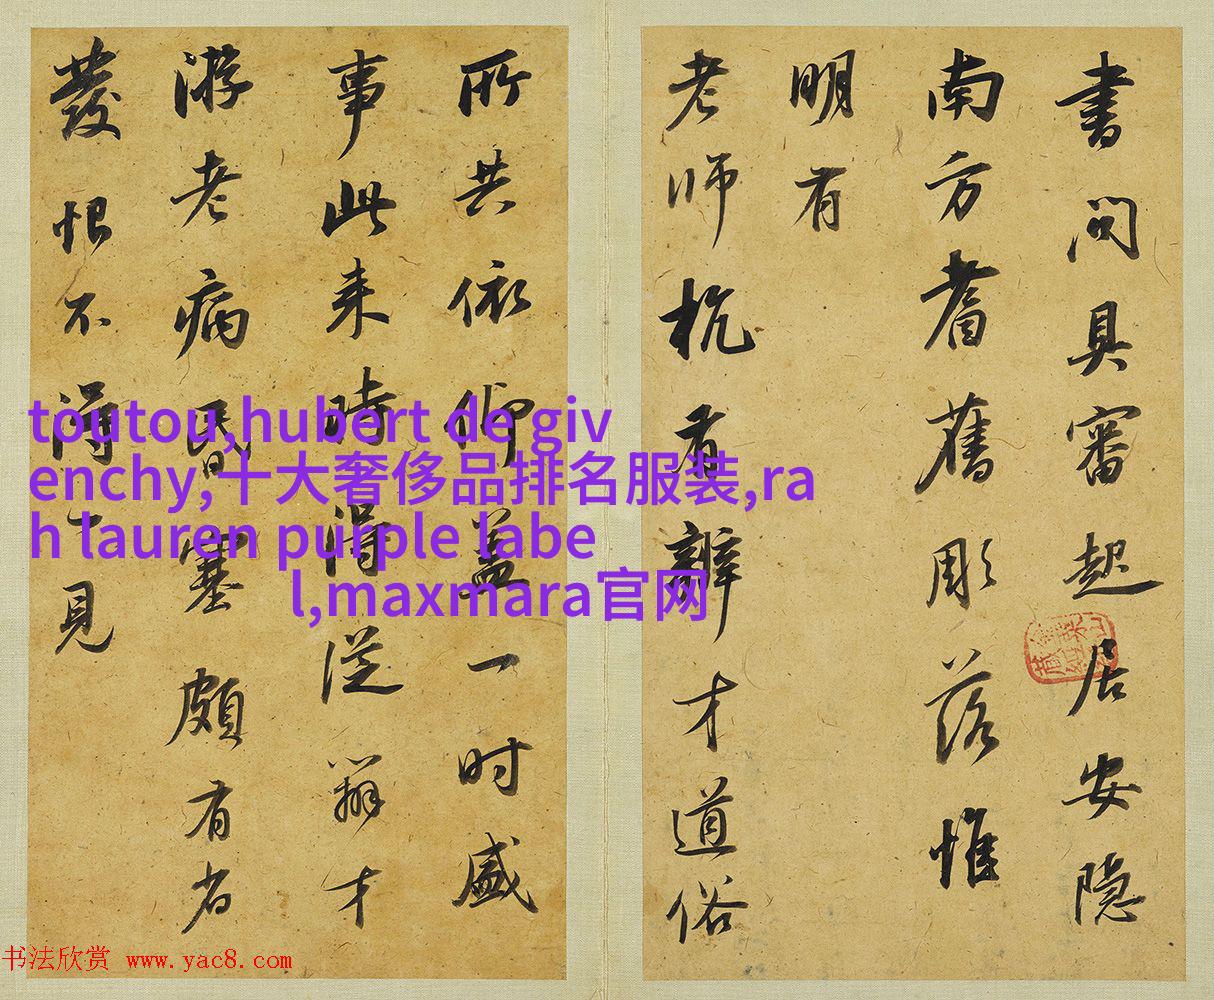 書問具審起居安隱
南方耆舊彫落惟
明有
老師杭有辯才道俗
所共依仰蓋一時盛
事此来時得從辯才
游老病昬塞頗有省
發恨不得一見
toutou,hubert de giv
enchy,十大奢侈品排名服装,ra
h lauren purple labe
l,maxmara官网
书法欣赏 www.yac8.com